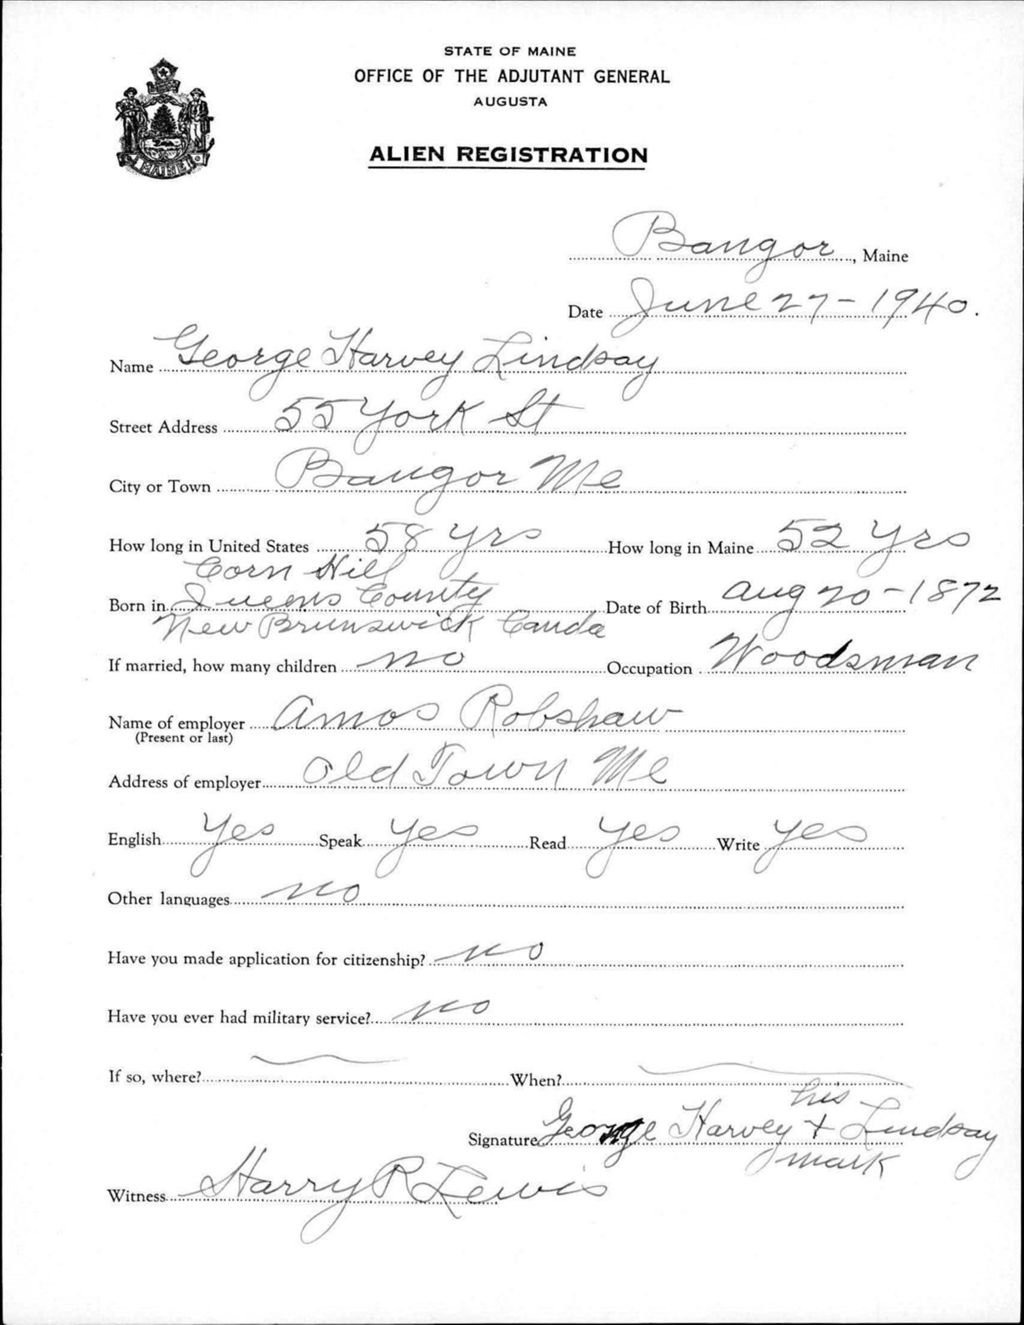 STATE OF MAINE
OFFICE OF THE ADJUTANT GENERAL
AUGUSTA
ALIEN REGISTRATION
MAINE
Bangor, Maine
Date June 27 - 1940.
Name George Harvey Lindsay
Street Address 55 York St
City or Town Bangor Me
How long in United States 58 yrs How long in Maine 52 yrs
Corn Hill
Born in Queens County Date of Birth Aug 20 - 1872
New Brunswick Canda
If married, how many children no Occupation Woodsman
Name of employer Amos Robshaw
(Present or last)
Address of employer Old Town Me
English Yes Speak yes Read yes Write yes
Other languages no
Have you made application for citizenship? no
Have you ever had military service? no
If so, where? When?
his
Signature George Harvey + Lindsay
mark
Witness Harry R Lewis